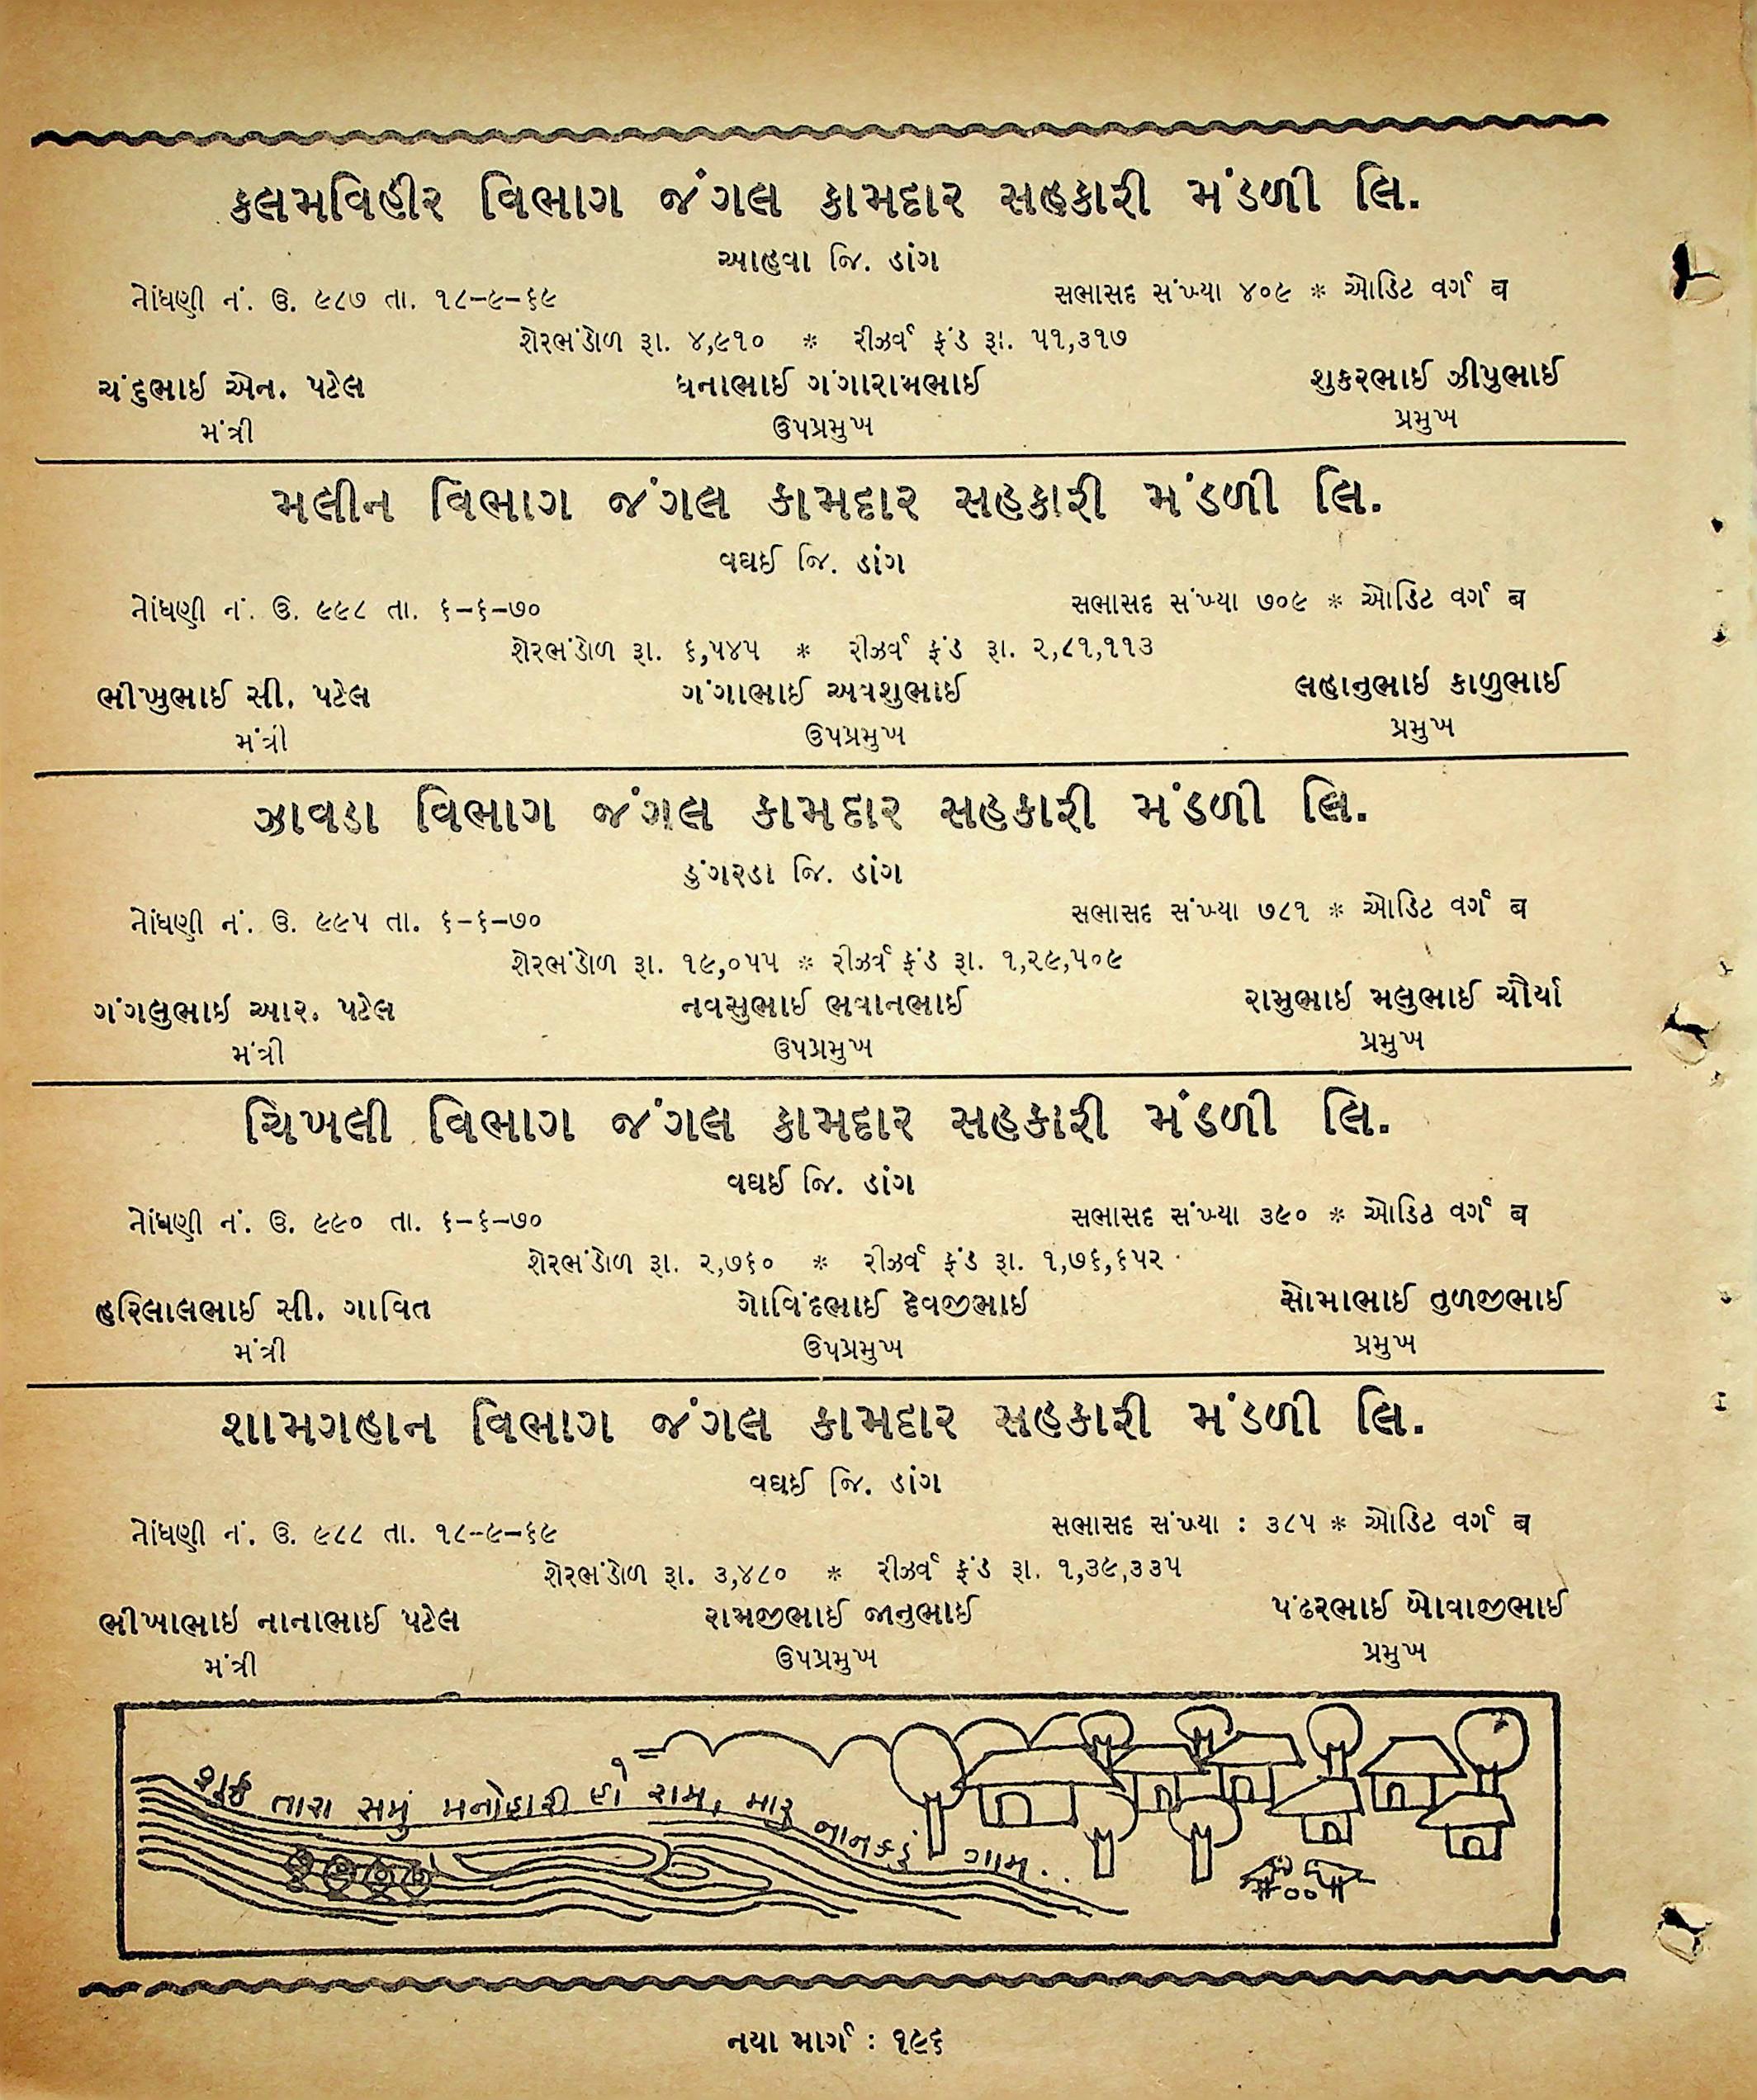 કલમવિહીર વિભાગ જંગલ કામદાર સહકારી મંડળી લિ.
આહવા જિ. ડાંગ
નોંધણી નં. ઉ. ૯૮૭ તા. ૧૮-૯-૬૯ સભાસદ સંખ્યા ૪૦૯ * ઓડિટ વર્ગ બ
શેરભંડોળ રૂા. ૪,૯૧૦ * રીઝર્વ ફંડ રૂા. ૫૧,૩૧૭
ચંદુભાઈ એન. પટેલ ધનાભાઈ ગંગારામભાઈ શુકરભાઈ ઝીપુભાઈ
મંત્રી ઉપપ્રમુખ પ્રમુખ
મલીન વિભાગ જંગલ કામદાર સહકારી મંડળી લિ.
વઘઈ જિ. ડાંગ
નોંધણી નં. ઉ. ૯૯૮ તા. ૬-૬-૭૦ સભાસદ સંખ્યા ૭૦૯ * ઓડિટ વર્ગ બ
શેરભંડોળ રૂા. ૬,૫૪૫ * રીઝર્વ ફંડ રૂા. ૨,૮૧,૧૧૩
ભીખુભાઈ સી. પટેલ ગંગાભાઈ અત્રશુભાઈ લહાનુભાઈ કાળુભાઈ
મંત્રી ઉપપ્રમુખ પ્રમુખ
ઝાવડા વિભાગ જંગલ કામદાર સહકારી મંડળી લિ.
ડુંગરડા જિ. ડાંગ
નોંધણી નં. ઉ. ૯૯૫ તા. ૬-૬-૭૦ સભાસદ સંખ્યા ૭૮૧ * ઓડિટ વર્ગ બ
શેરભંડોળ રૂા. ૧૯,૦૫૫ * રીઝર્વ ફંડ રૂા. ૧,૨૯,૫૦૯
ગંગલુભાઇ આર. પટેલ નવસુભાઈ ભવાનભાઈ રામુભાઈ મલુભાઈ ચૌર્યા
મંત્રી ઉપપ્રમુખ પ્રમુખ
ચિખલી વિભાગ જંગલ કામદાર સહકારી મંડળી લિ.
વઘઈ જિ. ડાંગ
નોંધણી નં. ઉ. ૯૯૦ તા. ૬-૬-૭૦ સભાસદ સંખ્યા ૩૯૦ * ઓડિટ વર્ગ બ
શેરભંડોળ રૂા. ૨,૭૬૦ * રીઝર્વ ફંડ રૂા. ૧,૭૬,૬૫૨
હરિલાલભાઈ સી. ગાવિત ગોવિંદભાઈ દેવજીભાઇ સોમાભાઈ તુળજીભાઈ
મંત્રી ઉપપ્રમુખ પ્રમુખ
શામગહાન વિભાગ જંગલ કામદાર સહકારી મંડળી લિ.
વઘઈ જિ. ડાંગ
નોંધણી નં. ઉ. ૯૮૮ તા. ૧૮-૯-૬૯ સભાસદ સંખ્યા : ૩૮૫ * ઓડિટ વર્ગ બ
શેરભંડોળ રૂા. ૩,૪૮૦ * રીઝર્વ ફંડ રૂા. ૧,૩૯,૩૩૫
ભીખાભાઇ નાનાભાઈ પટેલ રામજીભાઈ જાનુભાઈ પંઢરભાઈ ખોવાજીભાઈ
મંત્રી ઉપપ્રમુખ પ્રમુખ
તારા સમું મનોહારી હો રામ, મારૂ નાનકડું ગામ.
નયા માર્ગ : ૧૯૬